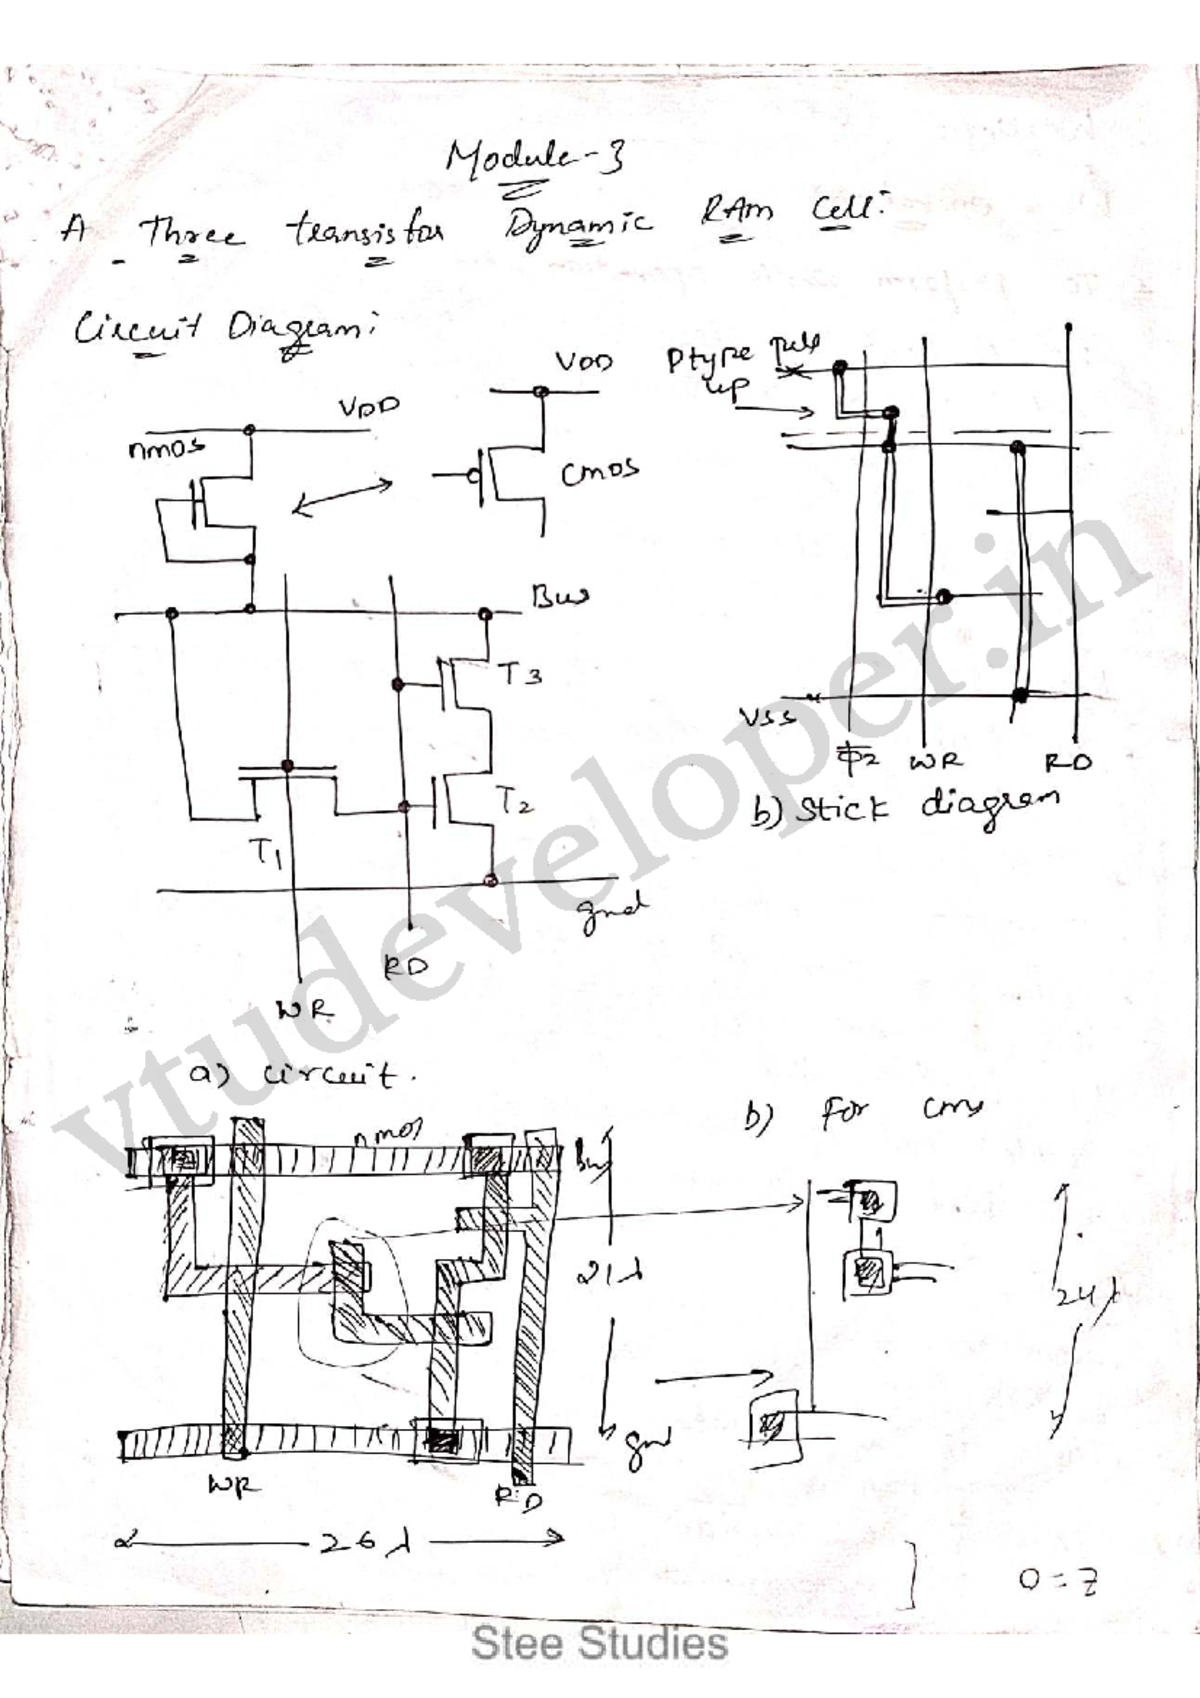 Module-3
A Three transistor Dynamic RAM Cell:
Circuit Diagram:
VDD
nmos
VDD
CMOS
Bus
T3
T2
T1
gnd
RD
WR
a) circuit.
Ptype pull
up
VSS
Φ̅2 WR RD
b) Stick diagram
b) For cms
nmos
Bus
21λ
24λ
gnd
WR
RD
26λ
0=Z
vtudeveloper.in
Stee Studies